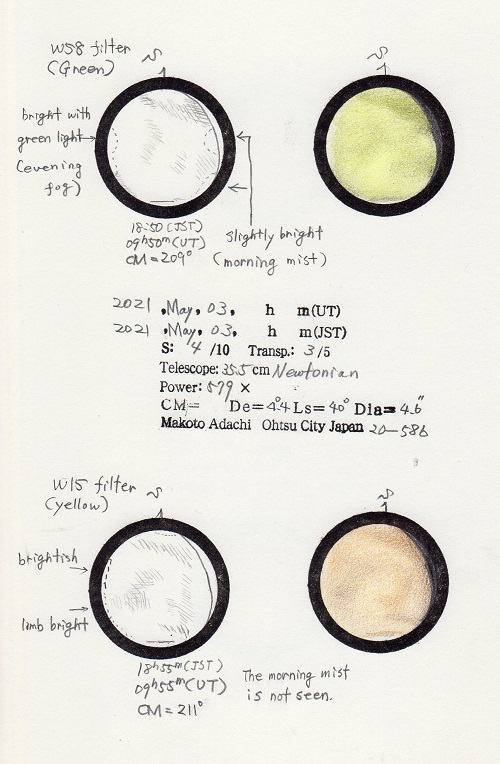 W58 filter
(Green)
S
S
bright with
green light
(evening
fog)
18:50 (JST)
09h50m(UT)
CM=209°
slightly bright
(morning mist)
2021 ,May, 03, h m(UT)
2021 ,May, 03, h m(JST)
S: 4 /10 Transp.: 3/5
Telescope: 35.5 cm Newtonian
Power: 579 ×
CM= De=4.°4 Ls=40° Dia=4.6"
Makoto Adachi Ohtsu City Japan 20-586
W15 filter
(yellow)
S
S
brightish
limb bright
18h55m(JST)
09h55m(UT)
CM=211°
The morning mist
is not seen.